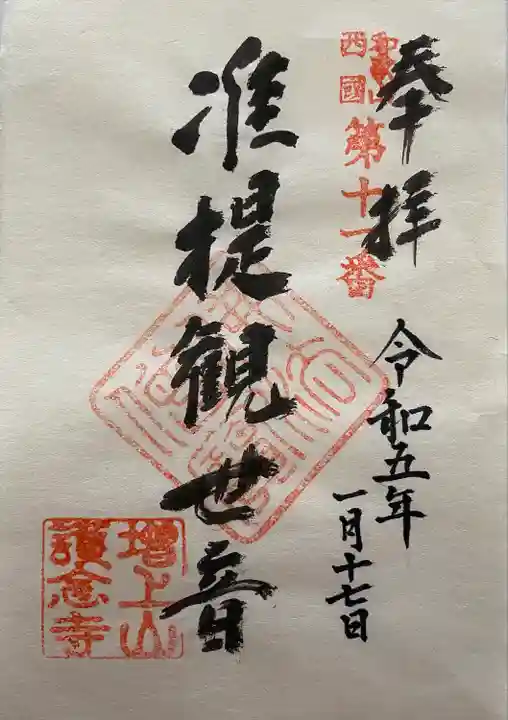 奉拝
和歌山
西國
第十一番
令和五年
一月十七日
准提観世音
増上山
護念寺